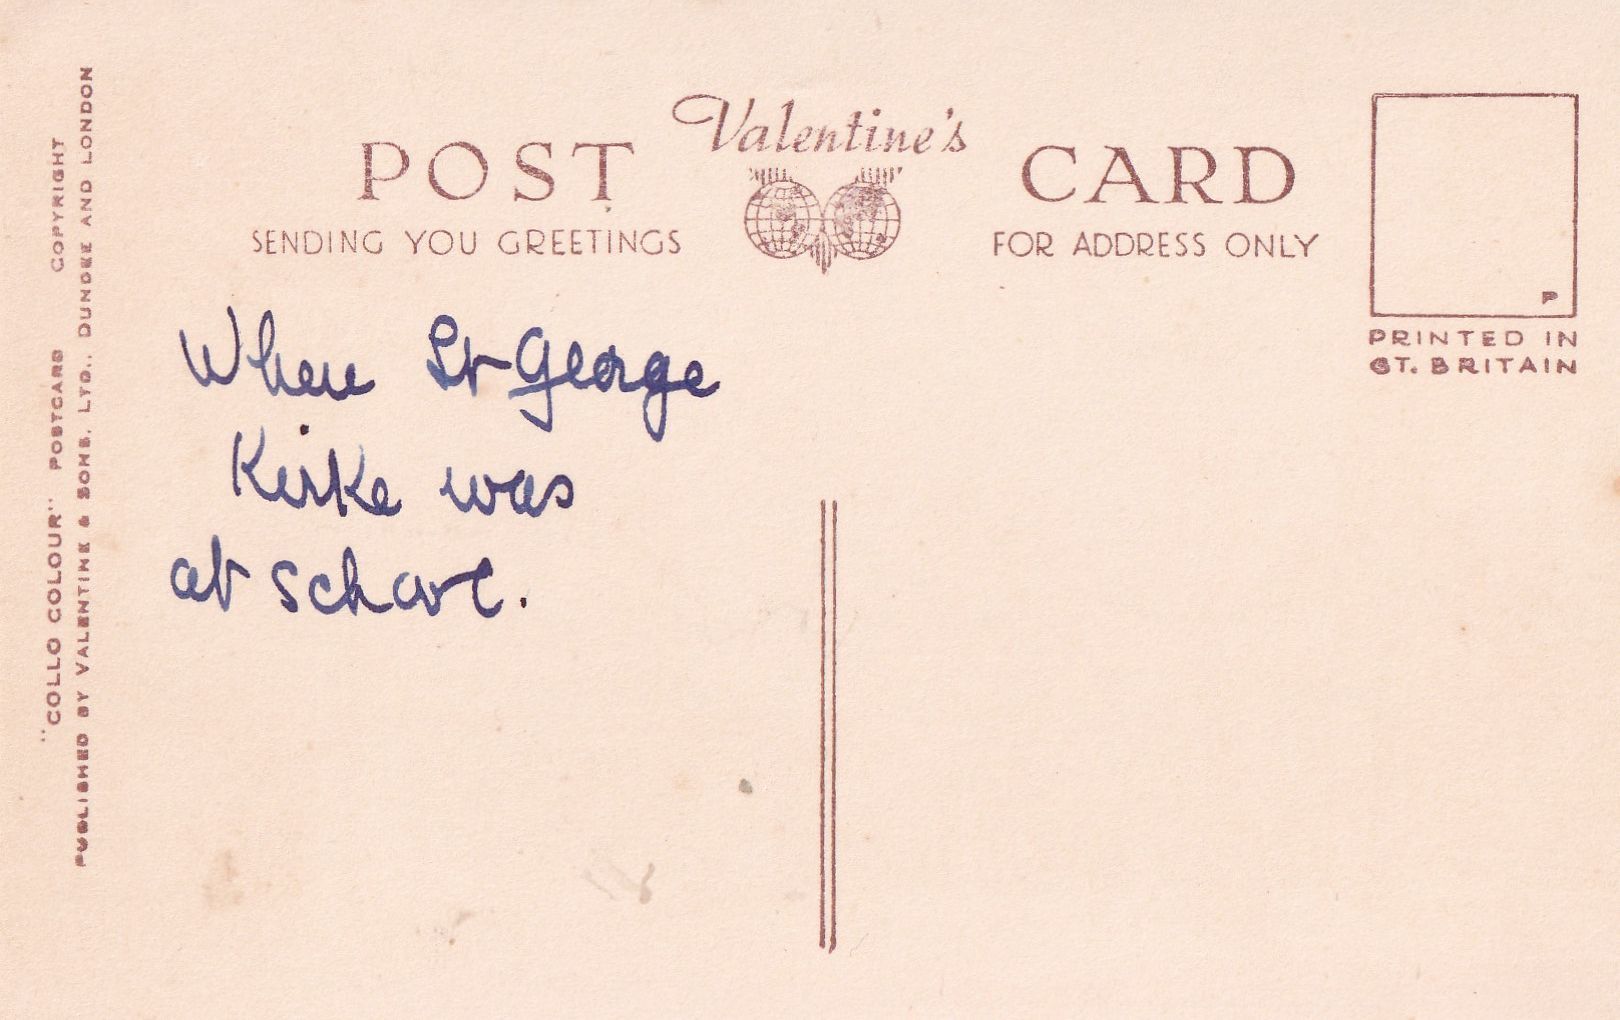 "COLLO COLOUR" POSTCARD COPYRIGHT
PUBLISHED BY VALENTINE & SONS, LTD., DUNDEE AND LONDON
Valentine's
POST CARD
SENDING YOU GREETINGS
FOR ADDRESS ONLY
P
PRINTED IN
GT. BRITAIN
When St George
Kirke was
at school.